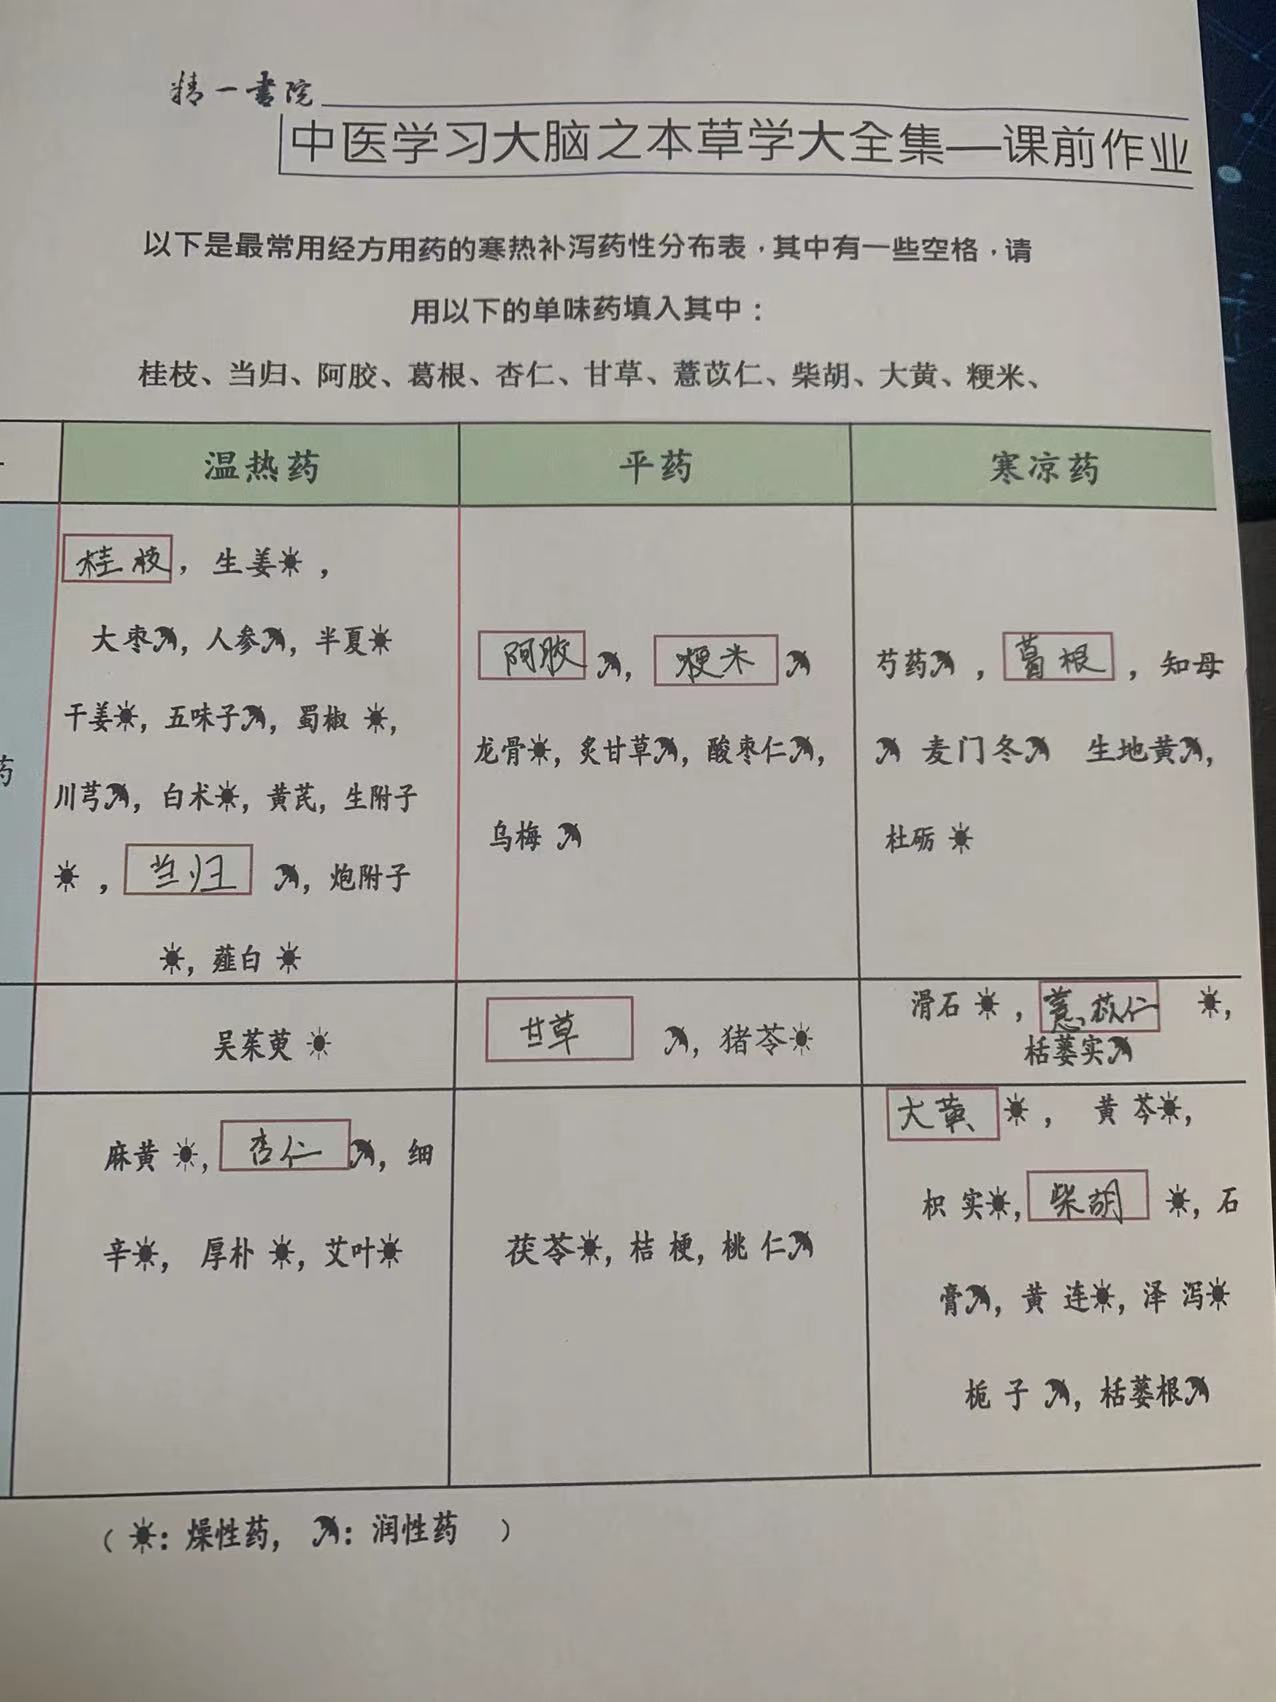 精一書院
中医学习大脑之本草学大全集—课前作业
以下是最常用经方用药的寒热补泻药性分布表，其中有一些空格，请
用以下的单味药填入其中：
桂枝、当归、阿胶、葛根、杏仁、甘草、薏苡仁、柴胡、大黄、粳米、
温热药 平药 寒凉药
药
桂枝，生姜☀，
大枣☂，人参☂，半夏☀
干姜☀，五味子☂，蜀椒 ☀，
川芎☂，白术☀，黄芪，生附子
☀，当归 ☂，炮附子
☀，薤白 ☀
阿胶 ☂，粳米 ☂
龙骨☀，炙甘草☂，酸枣仁☂，
乌梅 ☂
芍药☂，葛根，知母
☂ 麦门冬☂ 生地黄☂，
杜砺 ☀
吴茱萸 ☀
甘草 ☂，猪苓☀
滑石 ☀，薏苡仁 ☀，
栝蒌实☂
麻黄 ☀，杏仁☂，细
辛☀， 厚朴 ☀，艾叶☀
茯苓☀，桔 梗，桃 仁☂
大黄☀， 黄 芩☀，
枳 实☀，柴胡 ☀，石
膏☂，黄 连☀，泽 泻☀
栀 子 ☂，栝蒌根☂
（☀：燥性药，☂：润性药 ）